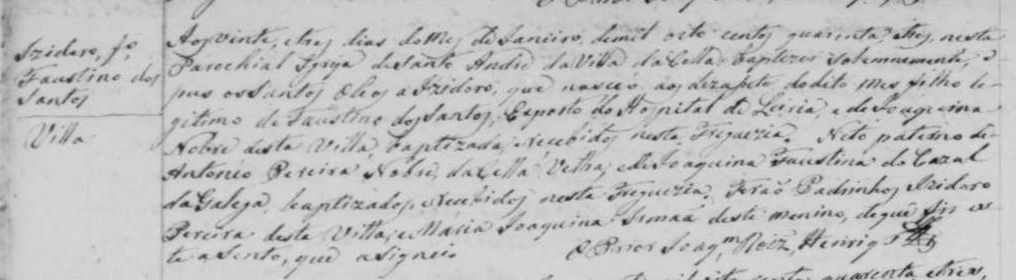 Izidoro, fo.
Faustino dos
Santos
Villa
Aos vinte, e tres dias do Mes de Janeiro, de mil oito centos quarenta, e tres, nesta
Parochial Igreja de Santo André da Villa da Cella, baptizei Solemnemente, e
pus os Santos Oleos a Izidoro, que nasceo aos dezasete do dito Mes filho le-
gitimo de Faustino dos Santos, Exposto do Hospital de Leiria, e de Joaquina
Nobre desta Villa, baptizada, e recebidos nesta Freguezia. Neto paterno de
António Pereira Nobre, da Cella Velha, e de Joaquina Faustina do Cazal
da Galega, baptizados, e recebidos nesta Freguezia. Forão Padrinhos Izidoro
Pereira desta Villa, e Maria Joaquina Irmaã deste menino, de que fis es-
te asento, que asignei O Prior Joaqm. Roiz Henriq